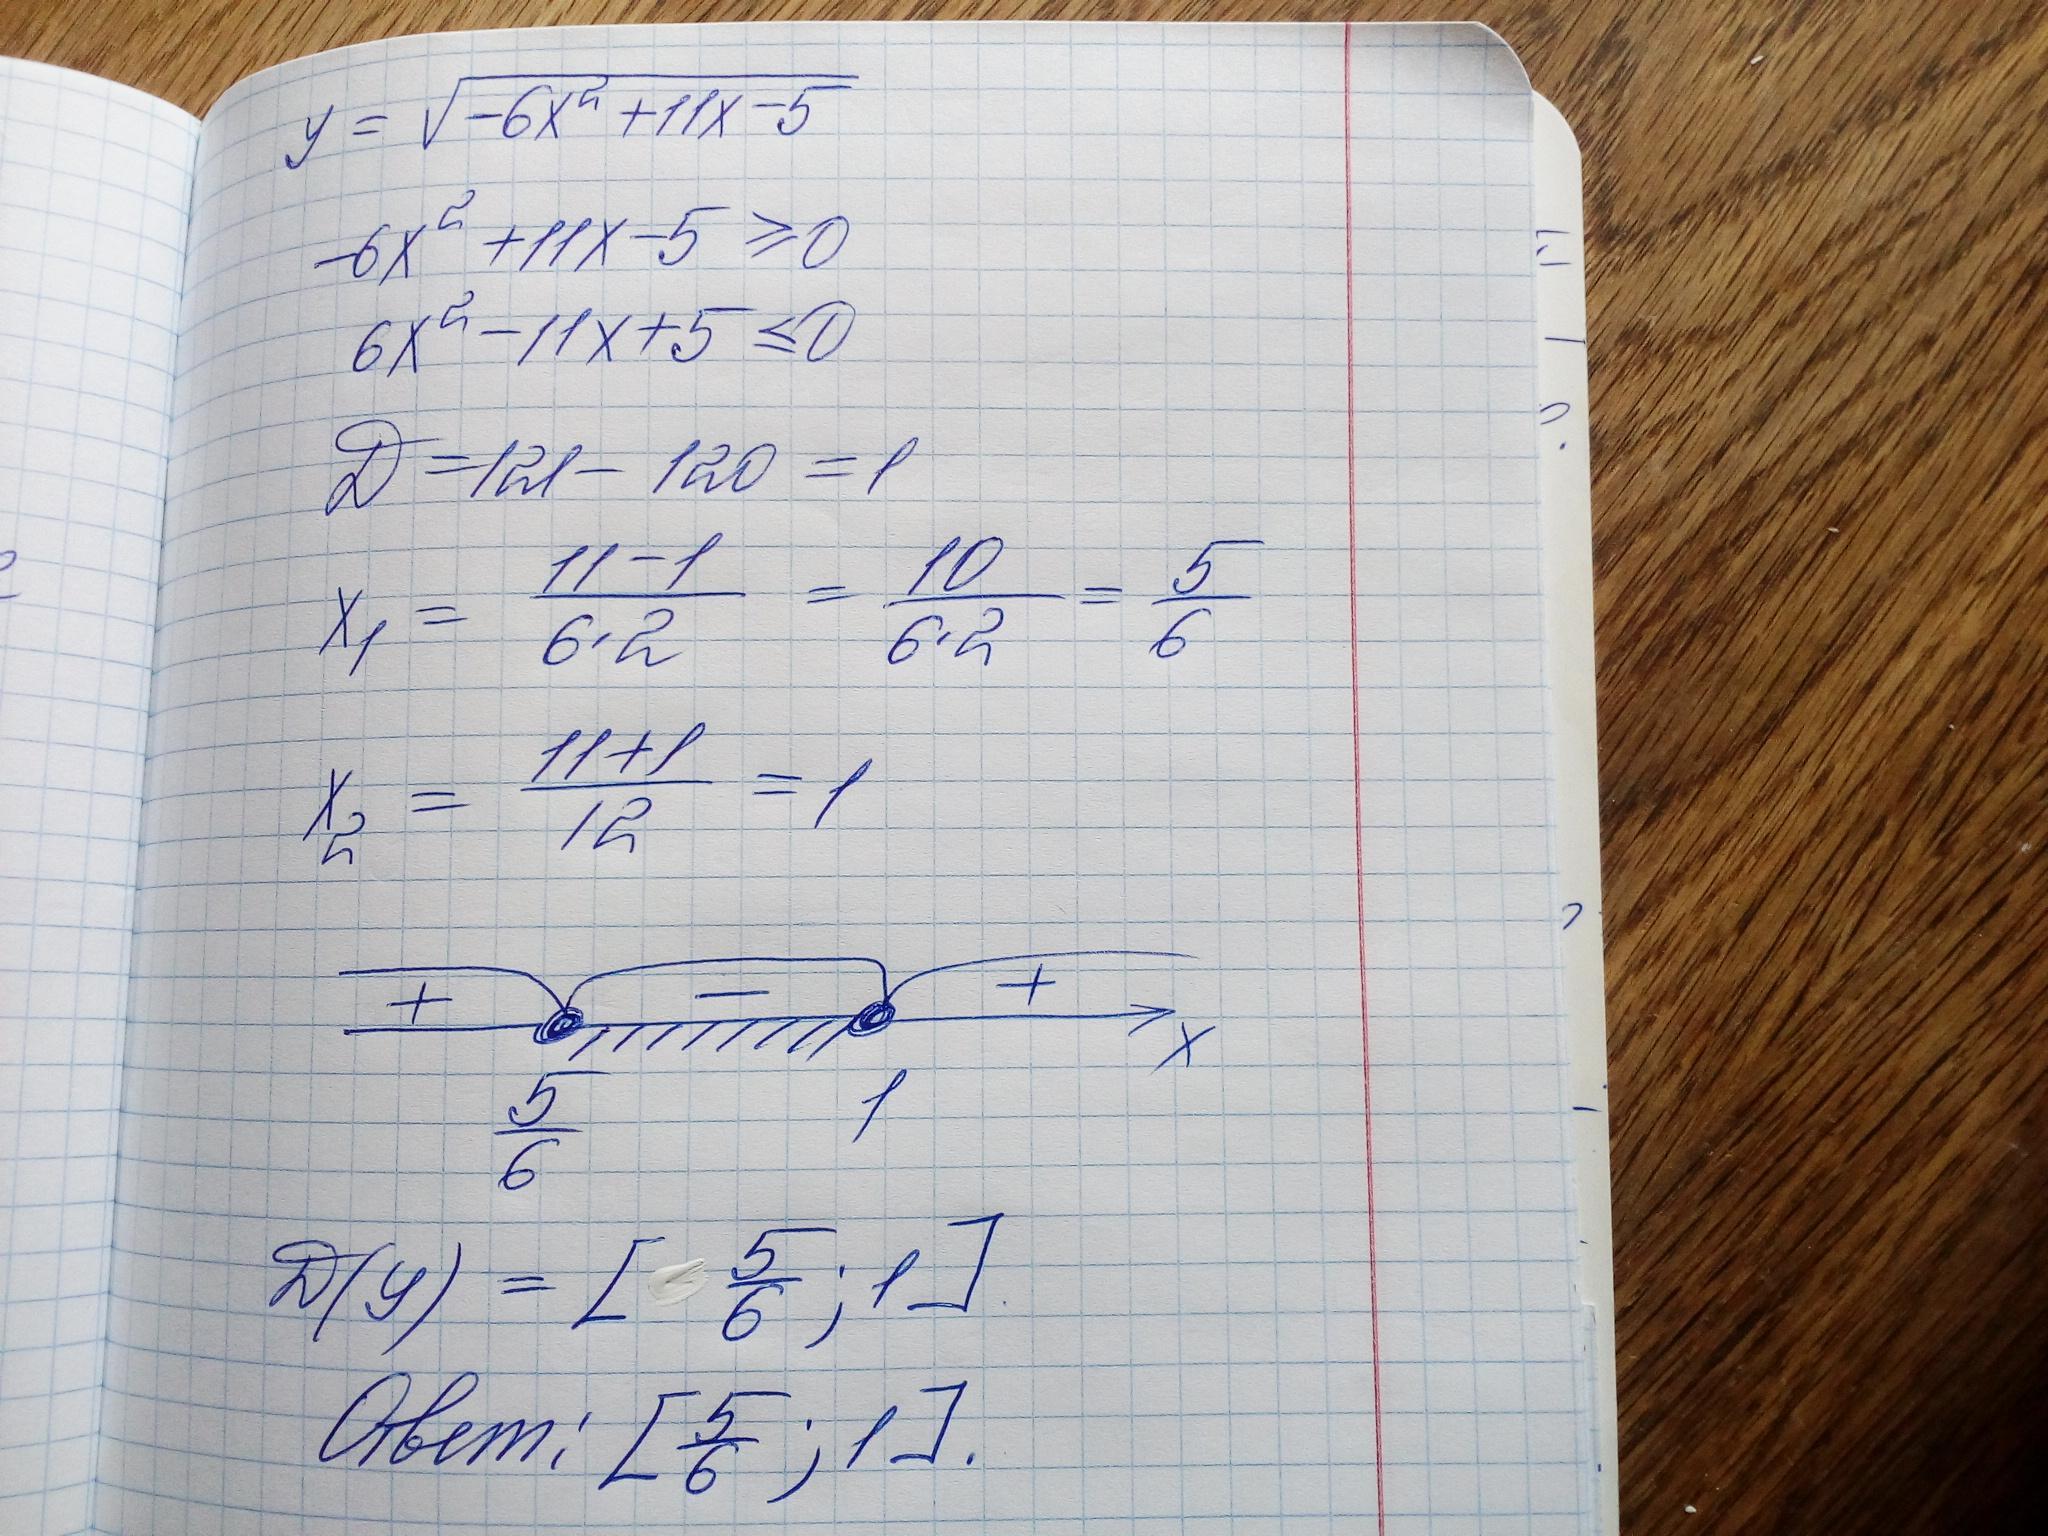 y = √(-6x² + 11x - 5)
-6x² + 11x - 5 ⩾ 0
6x² - 11x + 5 ⩽ 0
D = 121 - 120 = 1
x₁ = (11 - 1)/(6·2) = 10/(6·2) = 5/6
x₂ = (11 + 1)/12 = 1
+ − + x
5/6 1
D(y) = [5/6; 1].
Ответ: [5/6; 1].